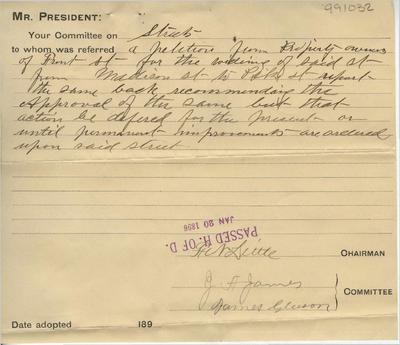 991032
MR. PRESIDENT:
Your Committee on Streets
to whom was referred a petition from Property owners
of Front st for the widing of said st
from Madison st to Polk st report
the same back recommending the
Approval of the same but that
action be defered for the present or
until permanent improvements are ordered
upon said street
PASSED H. OF D.
JAN 20 1896
CHAIRMAN
J. F. James
James Gleason
COMMITTEE
Date adopted 189